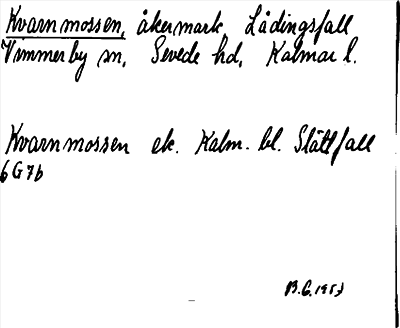 Kvarnmossen, åkermark, Lådingsfall
Vimmerby sn, Sevede hd, Kalmar l.
Kvarnmossen ek. Kalm. bl. Slättfall
6G7b
B.G. 1953